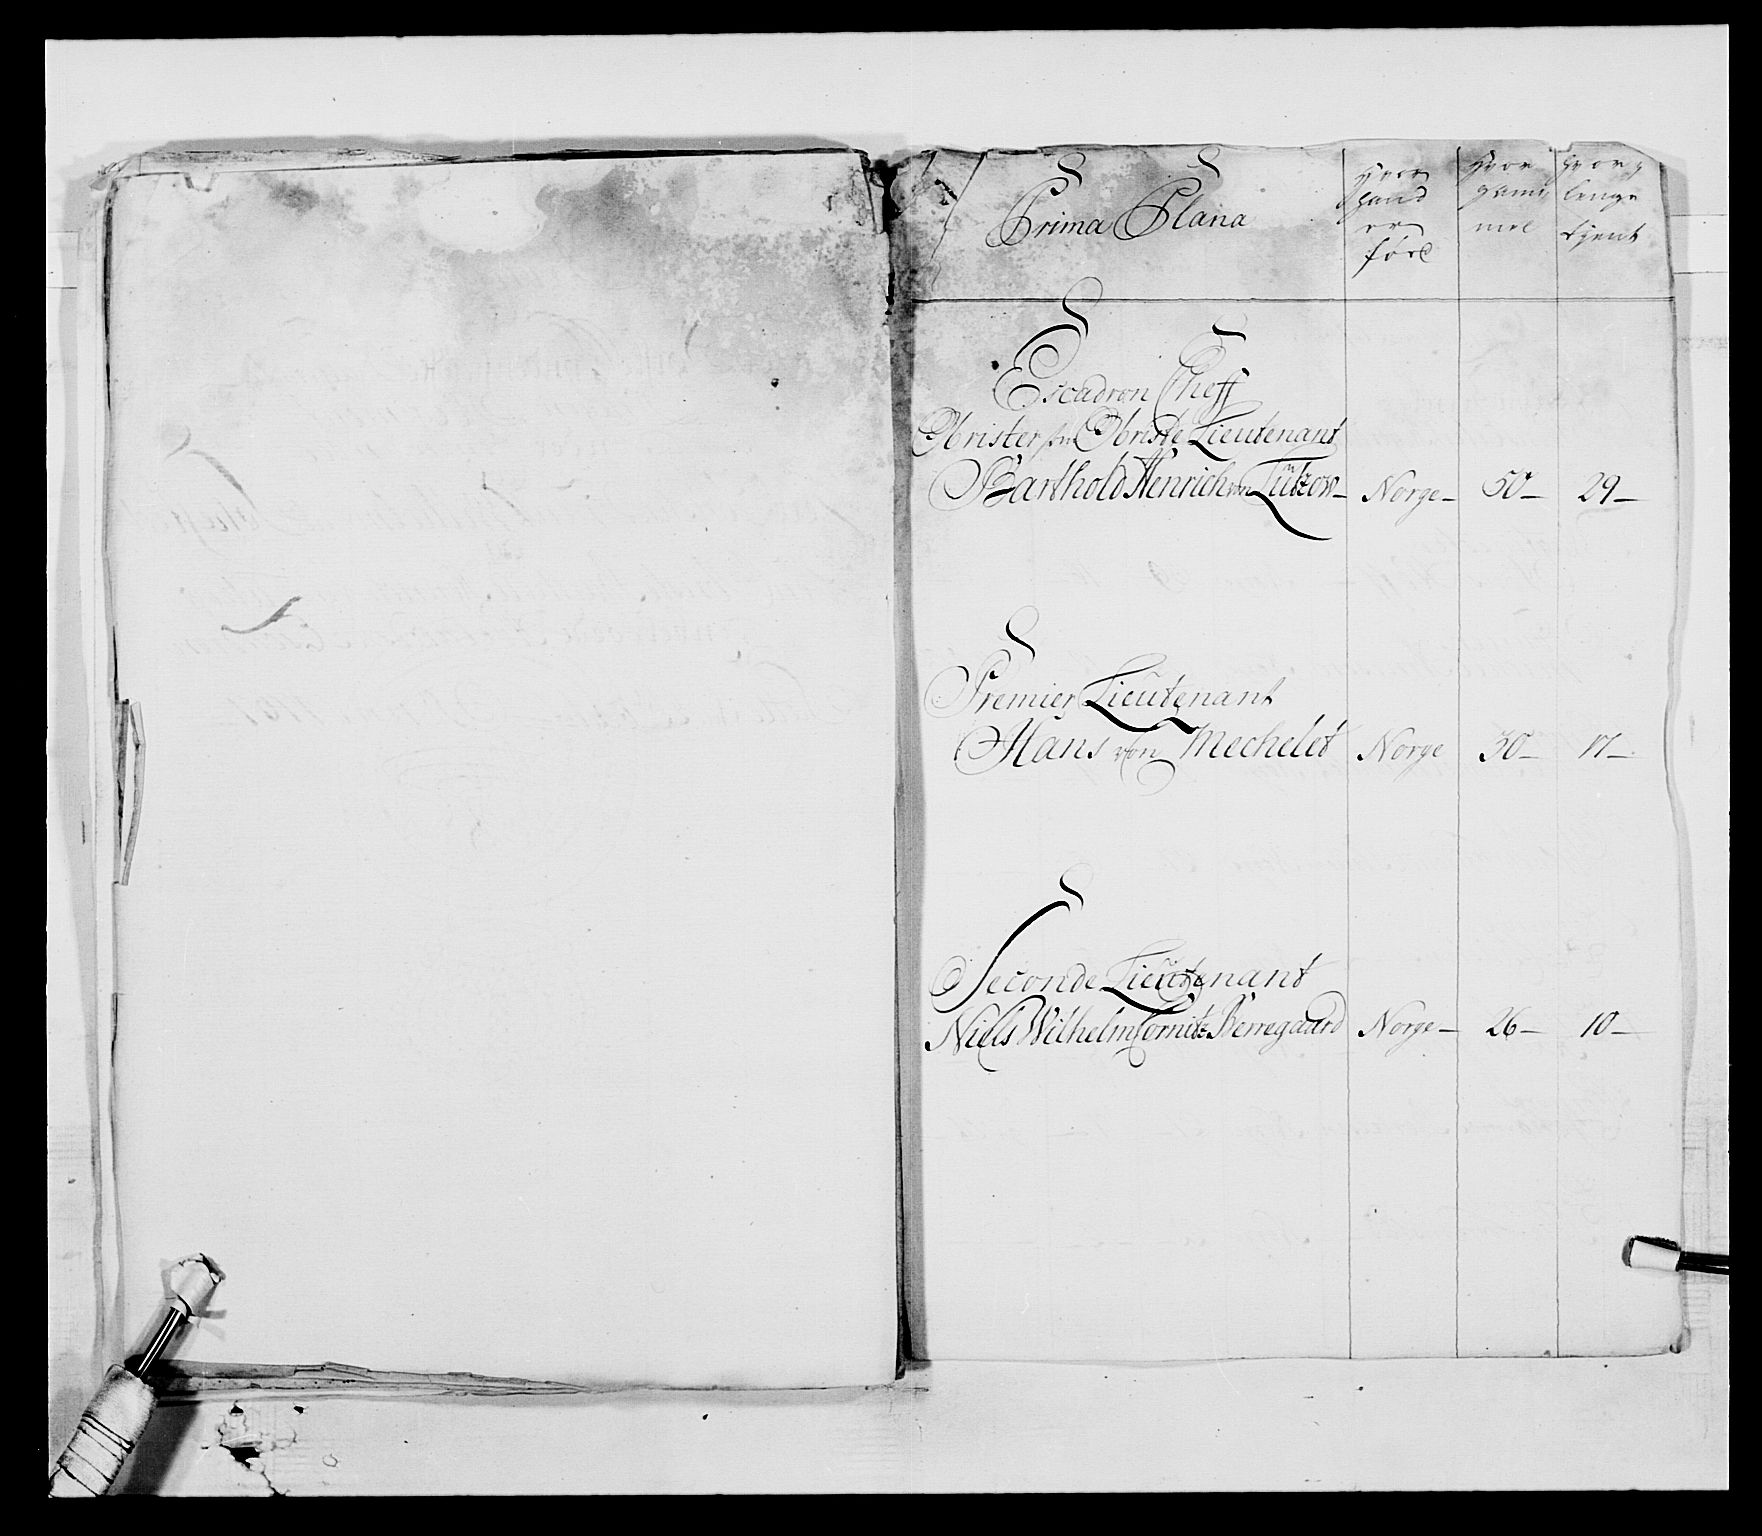 Prima Plana
Hvor
hand
er
föd
Hvor
gam̄
mel
Hvor
lenge
tjent
Escadron Cheff
Obrister som Obriste Lieutenant
Barthold Henrich von Lützow Norge 50 29
Premier Lieutenant
Hans von Mechelet Norge 30 17
Seconde Lieutenant
Niels Wilhelm Cornitz Berregaard Norge 26 10